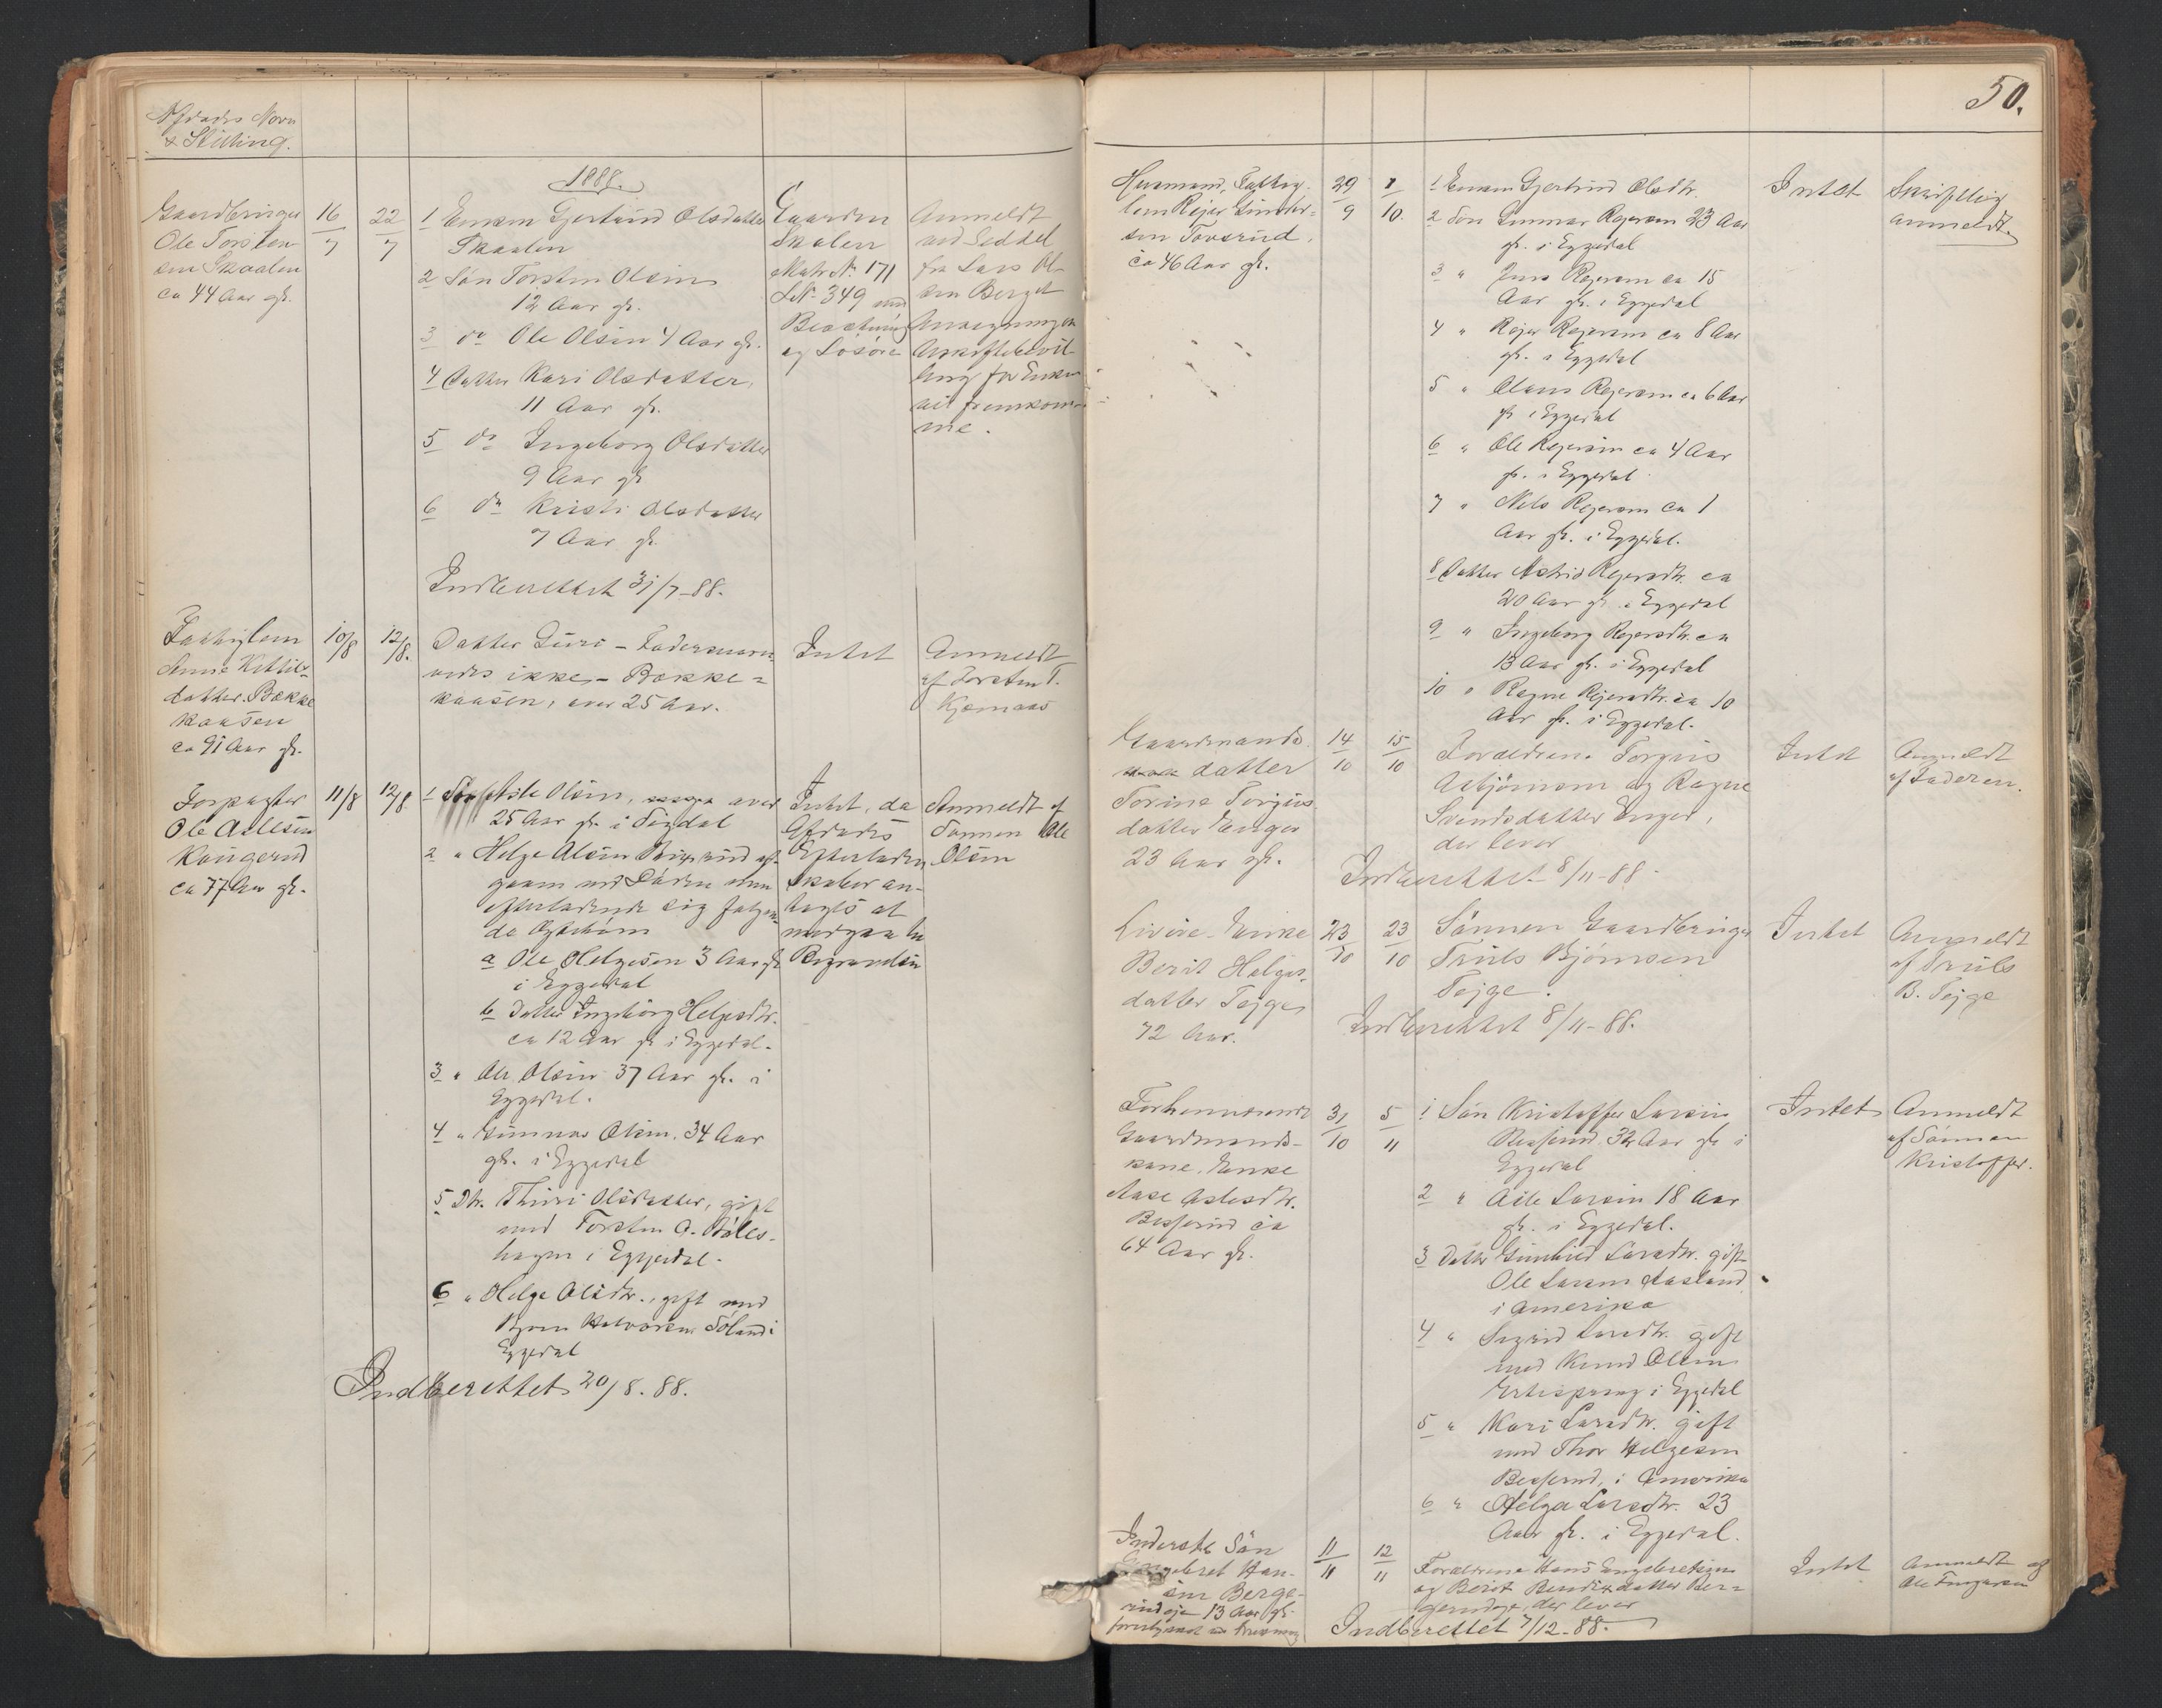 Afdødes Navn
& Stilling.
1888.
Gaardbruger
Ole Torsten-
sen Skaalen
ca 44 Aar gl.
16/7
22/7
1 Enken Gjertrud Olsdatter
Skaalen
2 Søn Torsten Olsen
12 Aar gl.
3 do Ole Olsen 4 Aar gl.
4 Datter Kari Olsdatter,
11 Aar gl.
5 do Ingeborg Olsdatter
9 Aar gl
6 do Kristi Olsdatter
7 Aar gl.
Indberettet 31/7-88.
Gaarden
Skalen
Matr. No 171
L.No 349 med
Besætning
og Løsøre
Anmeldt
ved Seddel
fra Lars Ol-
sen Berget
Ansøgning om
Uskiftebevil-
ling for Enken
vil fremkom-
me.
Fattiglem
Anne Kittils-
datter Bække
kaasen
ca 91 Aar gl.
10/8
12/8.
Datter Guri - Fadernavn
vides ikke - Bække-
kaasen, over 25 Aar.
Intet
Anmeldt
af Torsten T.
Kjemaas
Forpagter
Ole Asleson
Kaugerud
ca 77 Aar gl.
11/8
12/8.
1 Søn Asle Olsen, over
25 Aar gl. i Sigdal
2 " Helge Olsen af-
gaaen ved Døden men
efterladende sig følgen-
de Afkom
a Ole Helgesen 3 Aar gl
i Eggedal
b Datter Ingeborg Helgesdtr.
ca 12 Aar gl i Eggedal.
3 " Ole Olsen 37 Aar gl. i
Eggedal.
4 " Gunnar Olsen. 34 Aar
gl. i Eggedal
5 Dtr. Thuri Olsdatter, gift
med Torsten O.
hagen i Eggedal.
6 " Helge Olsdtr., gift med
Bjørn Halvorsen Søland i
Eggedal
Indberettet 20/8. 88.
Intet, da
Afdødes
Efterladen
skaber an-
tages at
medgaa til
Begravelsen
Anmeldt af
Sønnen Ole
Olsen
50.
Husmand, Fattig-
lem Rejer Gunder-
sen Tovsrud.
ca 46 Aar gl.
29/9
1/10.
1 Enken Gjertrud Olsdtr.
2 Søn Gunnar Rejersen 23 Aar
gl. i Eggedal
3 " Jens Rejersen ca 15
Aar gl. i Eggedal
4 " Rejer Rejersen ca 8 Aar
gl. i Eggedal
5 " Olaus Rejersen ca 6 Aar
gl i Eggedal
6 " Ole Rejersen ca 4 Aar
gl. i Eggedal
7 " Nils Rejersen ca 1
Aar gl. i Eggedal.
8 Datter Astrid Rejersdtr. ca
20 Aar gl. i Eggedal
9 " Ingeborg Rejersdtr. ca
13 Aar gl. i Eggedal
10 " Ragne Rejersdtr. ca 10
Aar gl. i Eggedal.
Intet
Skriftlig
anmeldt.
Gaardmands
datter
Torine Torgus
datter Enger
23 Aar gl.
14/10
15/10
Forældrene Torgus
Asbjørnsen og Ragne
Svendsdatter Enger,
der lever
Indberettet 8/11-88.
Intet
Anmeldt
af Faderen.
Livøre Enke
Berit Helges-
datter Tejge
72 Aar.
23/10
23/10
Sønnen Gaardbruger
Truls Bjørnsen
Tejge.
Indberettet 8/11-88.
Intet
Anmeldt
af Truls
B. Tejge
Forhenværende
Gaardmands-
kone, Enke
Aase Aslesdtr.
Besserud ca
64 Aar gl.
31/10
5/11
1 Søn Kristoffer Larsen
Besserud 32 Aar gl i
Eggedal
2 " Asle Larsen 18 Aar
gl. i Eggedal.
3 Datter Gunhild Larsdtr. gift
Ole Larsen Aasland
i Amerika
4 " Sigrid Larsdtr. gift
med Knud Olsen
i Eggedal
5 " Kari Larsdtr. gift
med Thor Helgesen
Besserud, i Amerika
6 " Helga Larsdtr. 23
Aar gl. i Eggedal.
Intet
Anmeldt
af Sønnen
Kristoffer.
Inderste Søn
Engebret Han-
sen Berge-
13 Aar gl.
11/11
12/11
Forældrene Hans Engebretsen
og Berit Bendixdatter Ber-
der lever
Indberettet 7/12-88.
Intet
Anmeldt af
Ole